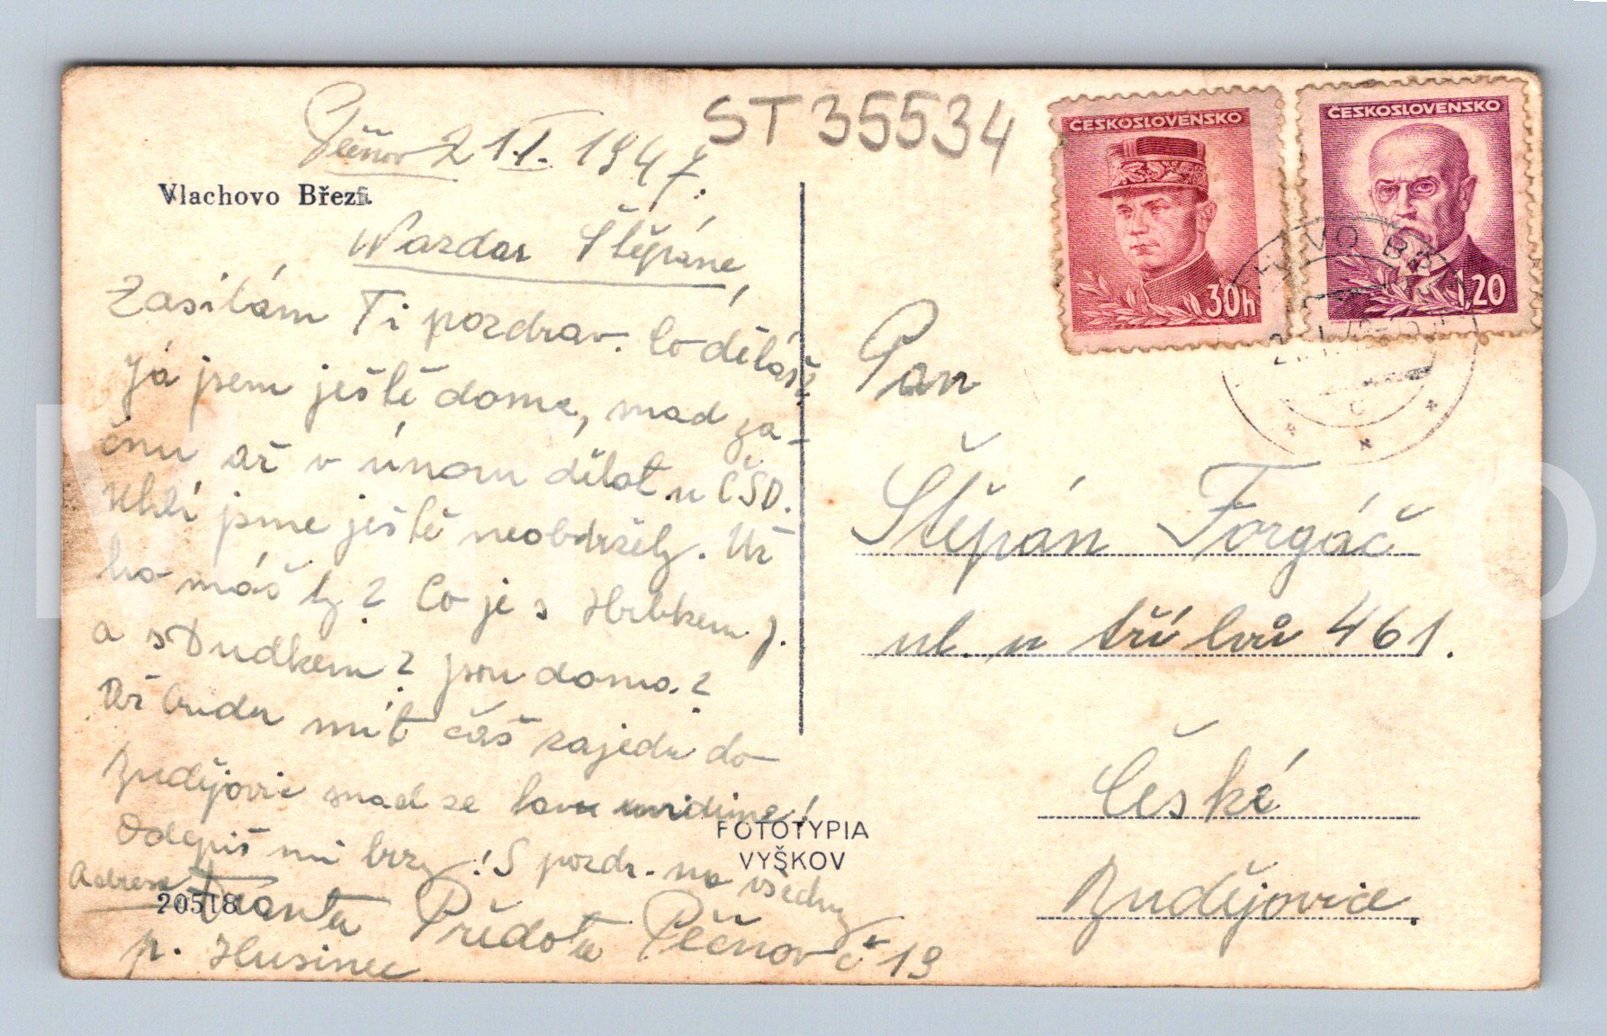 Pěčnov 21.I. 1947.
ST 35534
Vlachovo Březí.
Nazdar Štěpáne,
Zasílám Ti pozdrav. Co děláš?
Já jsem ještě doma, snad za-
čnu až v únoru dělat u ČSD.
Uhlí jsme ještě neobdrželi. Už
ho máš ty? Co je s Hrbkem J.
a s Dudkem? jsou doma?
Až budu mít čas zajedu do
Budějovic snad se tam uvidíme!
Odepiš mi brzy! S pozdr. na všechny
Adresa
Předota Pěčnov č 19
p. Husinec
20518
FOTOTYPIA
VYŠKOV
ČESKOSLOVENSKO
30h
ČESKOSLOVENSKO
1,20
Pan
Štěpán Forgáč
ul. u tří lvů 461.
České
Budějovice.